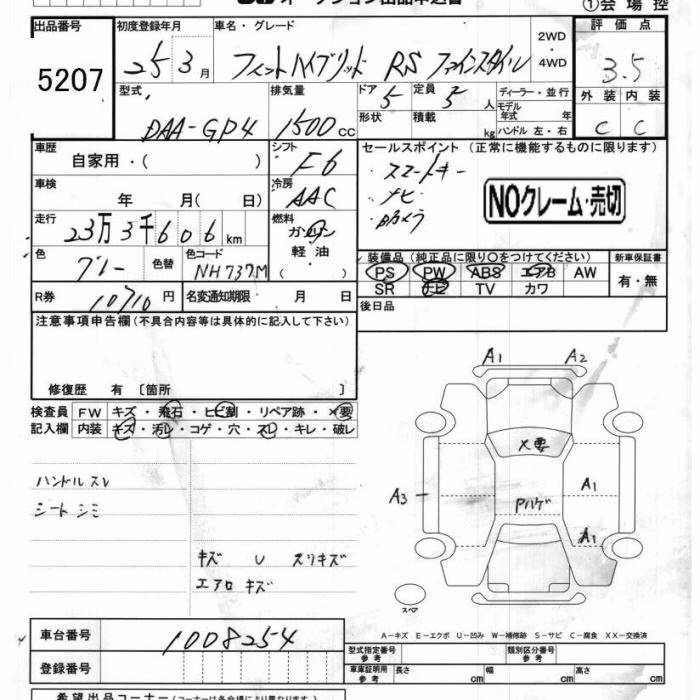 ①会場控
出品番号
5207
初度登録年月
25 3月
車名・グレード
フィットハイブリッド RS ファインスタイル
2WD
・
4WD
評価点
3.5
外装 内装
C C
型式
DAA-GP4
排気量
1500cc
ドア
5
定員
5人
形状
積載
kg
ディーラー・並行
モデル年式 年
ハンドル 左・右
車歴
自家用・( )
シフト
F6
セールスポイント (正常に機能するものに限ります)
・スマートキー
・ナビ
・Bカメラ
NOクレーム・売切
車検
年 月( 日)
冷房
AAC
走行
23万3千606km
燃料
ガソリン
軽油
( )
色
グレー
色替
色コード
NH737M
装備品 (純正品に限り○をつけてください)
PS PW ABS エアB AW
SR ナビ TV カワ
新車保証書
有・無
R券
10710円
名変通知期限 月 日
後日品
注意事項申告欄(不具合内容等は具体的に記入して下さい)
修復歴 有 〔箇所 〕
検査員
記入欄
FW キズ・飛石・ヒビ割・リペア跡・×要
内装 キズ・汚レ・コゲ・穴・スレ・キレ・破レ
ハンドル スレ
シート シミ
キズ U スリキズ
エアロ キズ
A1 A2
×要
A3
A1
Pハゲ
A1
スペア
A-キズ E-エクボ U-凹み W-補修跡 S-サビ C-腐食 XX-交換済
車台番号
1008254
登録番号
型式指定番号
参考
類別区分番号
参考
車庫証明用
参考
長さ cm 幅 cm 高さ cm
希望出品コーナー